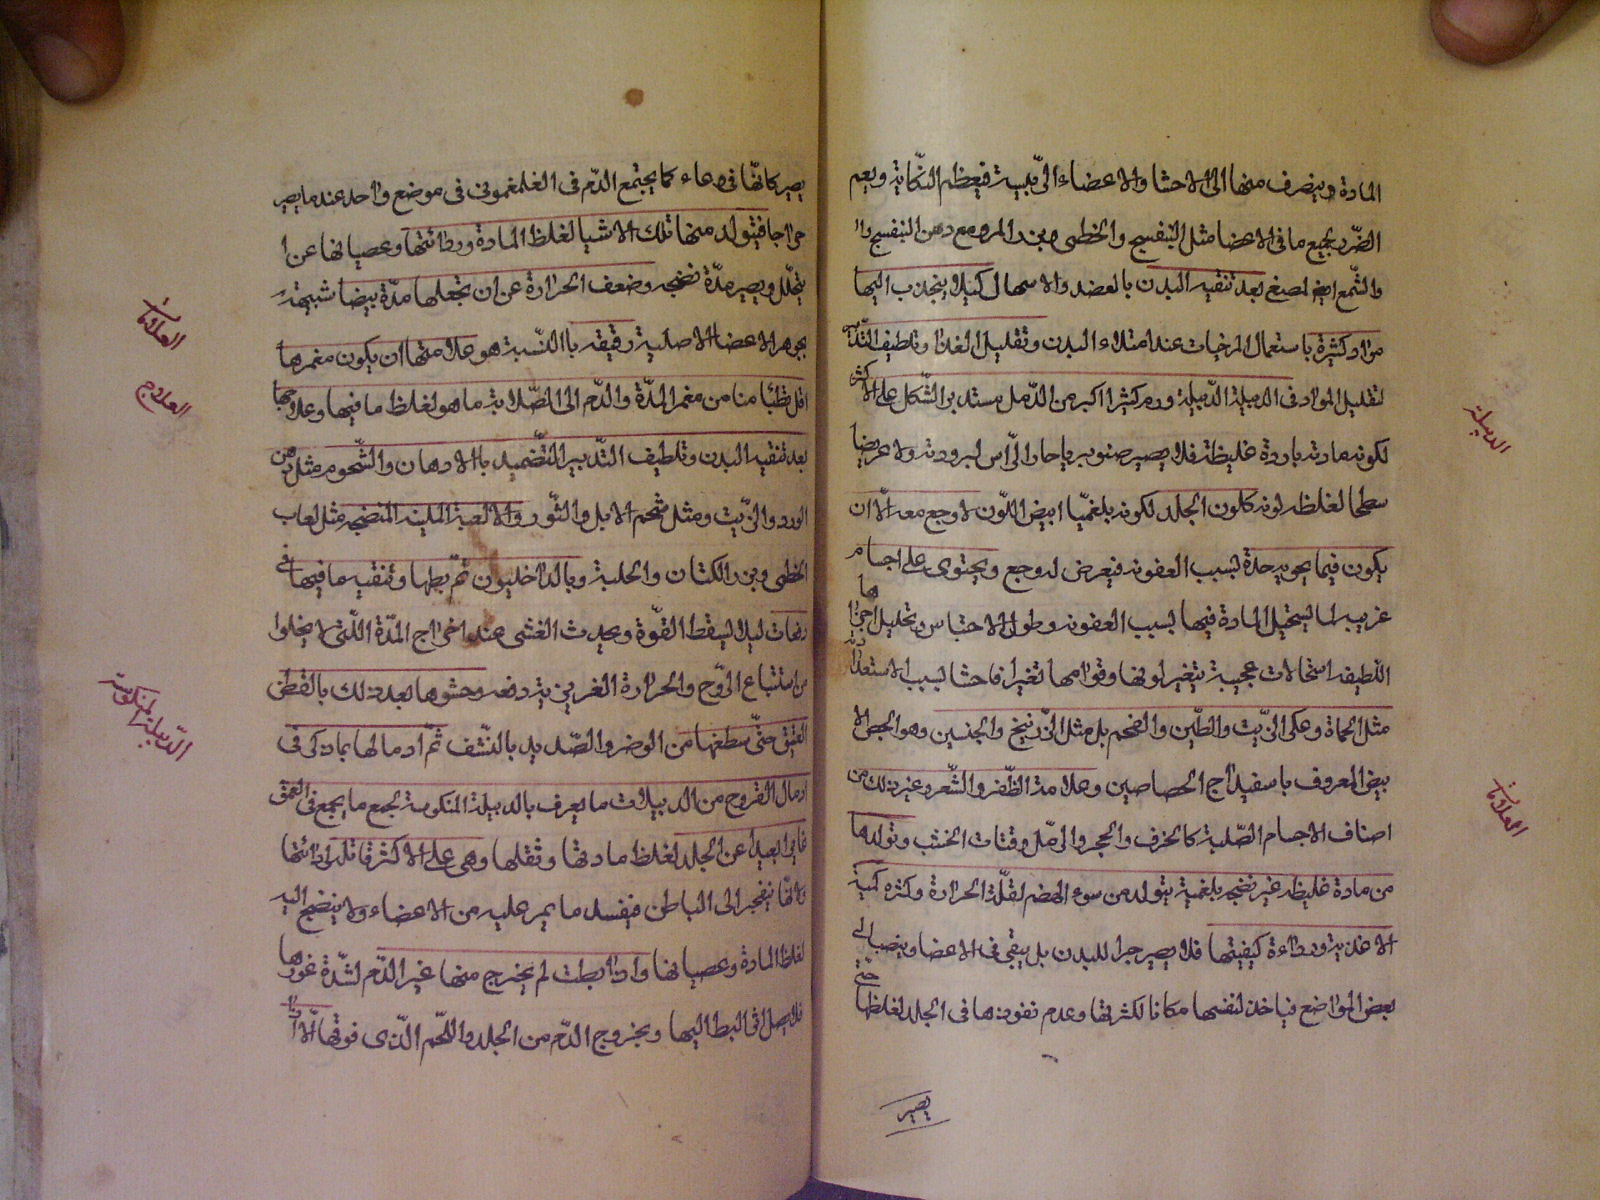 المادة وينصرف منها الى الاحشا والاعضاء الرئيسية فيعظم النكاية ويعم
الضرر بجميع ما فى الاعضا مثل البنفسج والخطمى وبزر المرو مع دهن البنفسج
والشمع المصفى بعد تنقيه البدن بالفصد والاسهال كيلا ينجذب اليها
مواد كثيرة باستعمال المرخيات عند امتلاء البدن وتقليل الغذا وتلطيف التدبير
لتقليل المواد فى الدبيلة الدبيلة ورم كثيرا اكبر من الدمل مستدير الشكل على الاكثر
لكونه مادته باردة غليظة فلا يصير صنوبريا حاد الراس لبرودته ولا عريضا
سطحا لغلظه لونه كلون الجلد لكونه بلغميا ابيض اللون لا وجع معه الا ان
يكون فيما يحويه حدة بسبب العفونه فيعرض له وجع ويحتوى على اجسام
غريبه لما يستحيل المادة فيها بسبب العفونه وطول الاحتباس وتحليل اجزاها
اللطيفه استحالات عجيبة يتغير لونها وقوامها تغيرا فاحشا بسبب الاستعداد
مثل الحماة وعكر الزيت والطين والفحم بل مثل الزرنيخ والجفسين وهو الجص الا
بيض المعروف باسفيداج الجصاصين وقلامة الظفر والشعر وغير ذلك من
اصناف الاجسام الصلبة كالخزف والحجر والرمل وفتات الخشب وتولدها
من مادة غليظه غير نضجه بلغمية يتولد من سوء الهضم لقلة الحرارة وكثره كمية
الاغذية ورداءة كيفيتها فلا يصير جزا للبدن بل يبقى فى الاعضا وينصب الى
بعض المواضع فياخذ لنفسها مكانا لكثرتها وعدم نفوذها فى الجلد لغلظها حتى
يصير
الدبيلة
العلامات
يصير كانها فى وعاء كما يجتمع الدم فى الفلغمونى فى موضع واحد عندما يصير
خراجا فيتولد منها تلك الاشيا لغلظ المادة ورداتها وعصيانها عن ا
يتحلل ويصير مدة نضجه وضعف الحرارة عن ان تجعلها مدة بيضا شبيهة
بجوهر الاعضا الاصلية رقيقه باالنسبة هو علامتها ان يكون مغمزها
اقل تطئامنا من مغمز المدة والدم الى الصلابة ما هو لغلظ ما فيها وعلاجها
بعد تنقيه البدن وتلطيف التدبير التضميد بالادهان والشحوم مثل دهن
الورد والزيت ومثل شحم الابل والثور والالعبة الملينه المنضجه مثل لعاب
الخطمى وبزر الكتان والحلبة وبالداخليون ثم بطها وتنقيه ما فيها فى
دفعات ليلا ليسقط القوة ويحدث الغشى عند اخراج المدة اللتى لا يخلوا
من استتباع الروح والحرارة الغريزية دفعه وحشوها بعد ذلك بالقطن
العتيق حتى ينطفها من الوضر والصديد بالنشف ثم ادمالها بما ذكر فى
ادمال القروح من الدبيلات ما يعرف بالدبيلة المنكوسة يجمع ما يجمع فى العمق
غايرا بعيدا عن الجلد لغلظ مادتها وثقلها وهى على الاكثر قاتلة لردائتها
ولانها ينفجر الى الباطن فيفسد ما يمر عليه من الاعضاء ولا ينضج اليه
لغلظ المادة وعصيانها واذا بطت لم يخرج منها غير الدم لشدة غورها
فلا يصل اثر البط اليها وبخروج الدم من الجلد واللحم الذى فوقها الا
العلامات
العلاج
الدبيلة المنكوسة